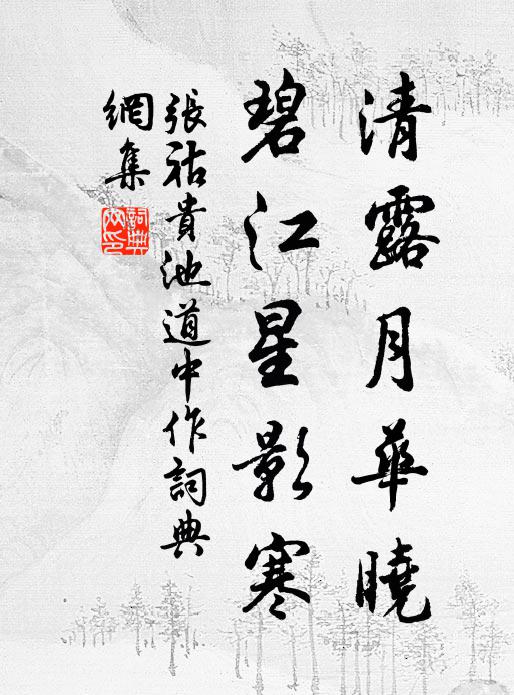 清露月華曉
碧江星影寒
張祜貴池道中作詞典
網集
詞典網印